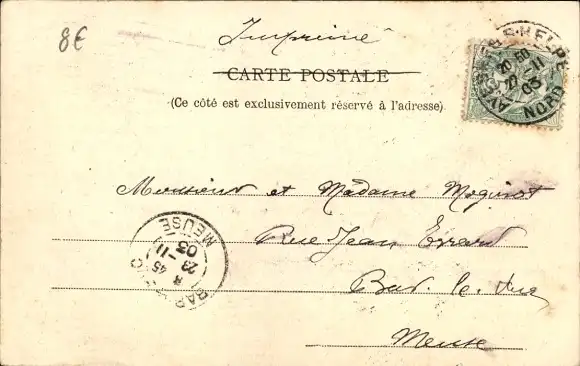 8€
Imprimé
CARTE POSTALE
(Ce côté est exclusivement réservé à l'adresse)
AVESNES-S-HELPE
20 50
22 -11
03
NORD
Monsieur et Madame Moginot
Rue Jean Errard
Bar le Duc
Meuse
BAR
45
23 -11
03
MEUSE